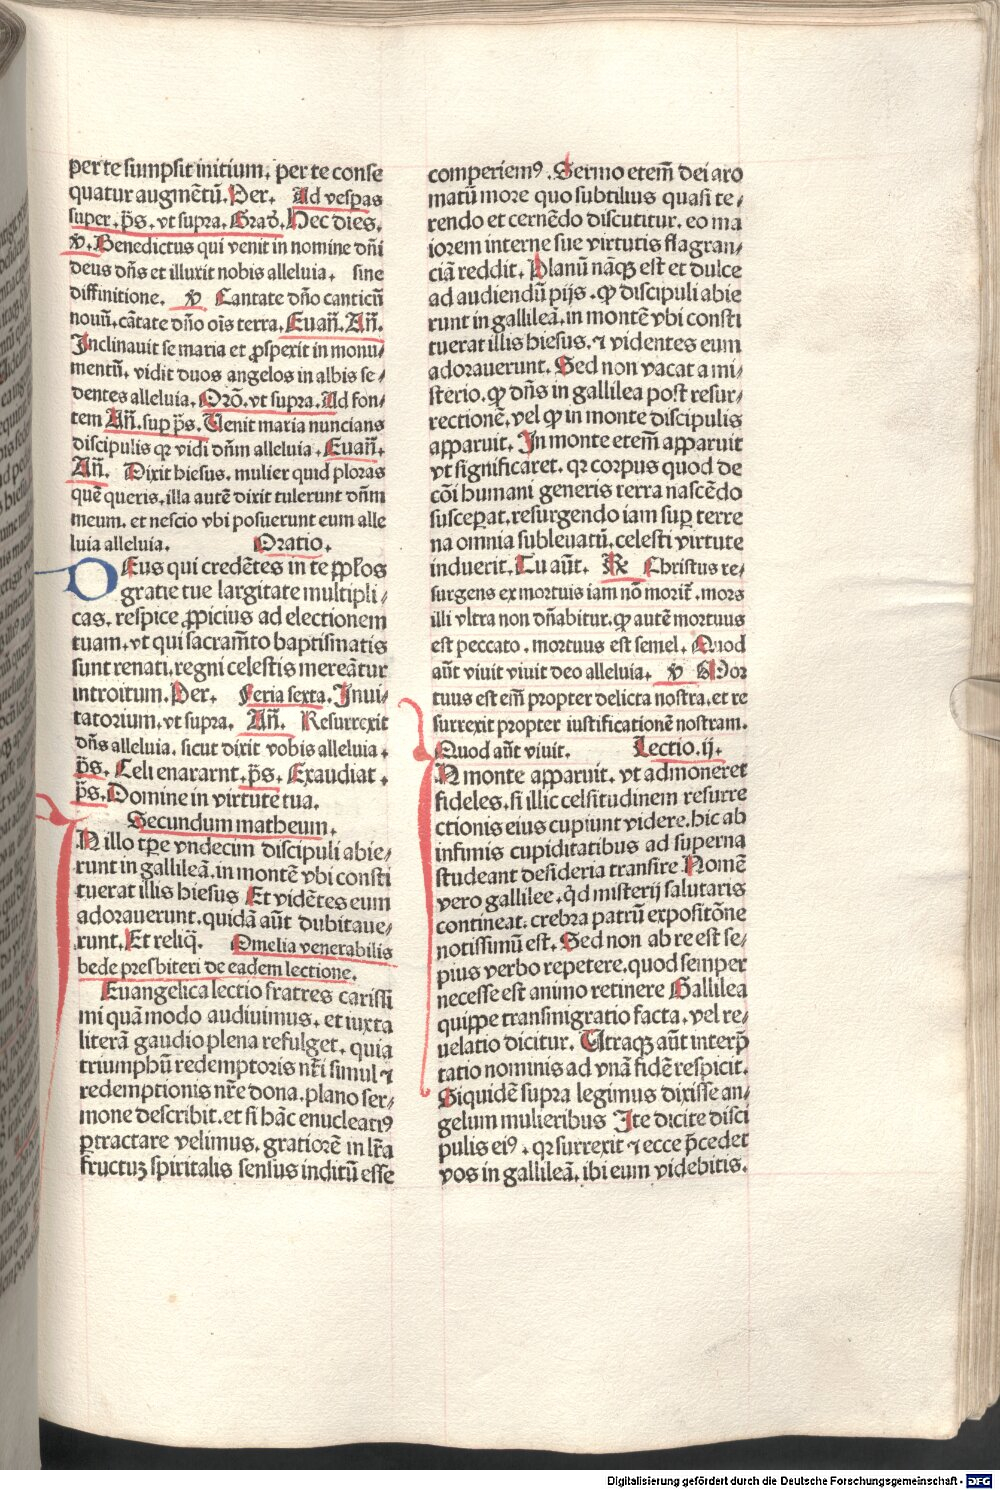 per te sumpsit initium. per te conse
quatur augmētū. Per. Ad vespas
super. p̄s. vt supra. Grad̄. Hec dies.
v̄. Benedictus qui venit in nomine dn̄i
deus dn̄s et illuxit nobis alleluia. sine
diffinitione. v̄ Cantate dn̄o canticū
nouū. cātate dn̄o ois̄ terra. Euan̄. An̄.
Inclinauit se maria et ꝓspexit in monu/
mentū. vidit duos angelos in albis se/
dentes alleluia. Orō. vt supra. Ad fon/
tem An̄. sup p̄s. Uenit maria nuncians
discipulis qꝛ vidi dn̄m alleluia. Euan̄.
An̄. Dixit hiesus. mulier quid ploras
quē queris. illa autē dixit tulerunt dn̄m
meum. et nescio vbi posuerunt eum alle
luia alleluia. Oratio.
DEus qui credētes in te pp̄los
gratie tue largitate multipli/
cas. respice ꝓpicius ad electionem
tuam. vt qui sacram̄to baptismatis
sunt renati. regni celestis mereātur
introitum. Per. Feria sexta. Inui/
tatorium. vt supra. An̄. Resurrexit
dn̄s alleluia. sicut dixit vobis alleluia.
p̄s. Celi enararnt. p̄s. Exaudiat.
p̄s. Domine in virtute tua.
Secundum matheum.
IN illo tp̄e vndecim discipuli abie/
runt in gallileā. in montē vbi consti
tuerat illis hiesus Et vidētes eum
adorauerunt. quidā aūt dubitaue/
runt. Et reliq̄. Omelia venerabilis
bede presbiteri de eadem lectione.
Euangelica lectio fratres carissi
mi quā modo audiuimus. et iuxta
literā gaudio plena refulget. quia
triumphū redemptoris nr̄i simul ⁊
redemptionis nr̄e dona. plano ser/
mone describit. et si hāc enucleatiꝰ
ꝑtractare velimus. gratiorē in lr̄a
fructuꝫ spiritalis sensus inditū esse
comperiemꝰ. Sermo etem̄ dei aro
matū more quo subtilius quasi te/
rendo et cernēdo discutitur. eo ma
iorem interne sue virtutis flagran/
ciā reddit. Planū nāqꝫ est et dulce
ad audiendū pijs. ꝙ discipuli abie
runt in gallileā. in montē vbi consti
tuerat illis hiesus. ⁊ videntes eum
adorauerunt. Sed non vacat a mi/
sterio. ꝙ dn̄s in gallilea post resur/
rectionē. vel ꝙ in monte discipulis
apparuit. In monte etem̄ apparuit
vt significaret. qꝛ corpus quod de
cōi humani generis terra nascēdo
susceperat. resurgendo iam suꝑ terre
na omnia subleuatū. celesti virtute
induerit. Tu aūt. ℟ Christus re/
surgens ex mortuis iam nō morit᷑. mors
illi vltra non dn̄abitur. ꝙ autē mortuus
est peccato. mortuus est semel. Quod
aūt viuit viuit deo alleluia. v̄ Mor
tuus est em̄ propter delicta nostra. et re
surrexit propter iustificationē nostram.
Quod aūt viuit. Lectio. ij.
IN monte apparuit. vt admoneret
fideles. si illic celsitudinem resurre
ctionis eius cupiunt videre. hic ab
infimis cupiditatibus ad superna
studeant desideria transire Nomē
vero gallilee. qd̄ misterij salutaris
contineat. crebra patrū expositōne
notissimū est. Sed non ab re est se/
pius verbo repetere. quod semper
necesse est animo retinere Gallilea
quippe transmigratio facta. vel re/
uelatio dicitur. Utraqꝫ aūt interp̄
tatio nominis ad vnā fidē respicit.
Siquidē supra legimus dixisse an/
gelum mulieribus Ite dicite disci
pulis eiꝰ. qꝛ surrexit ⁊ ecce p̄cedet
vos in gallileā. ibi eum videbitis.
Digitalisierung gefördert durch die Deutsche Forschungsgemeinschaft - DFG